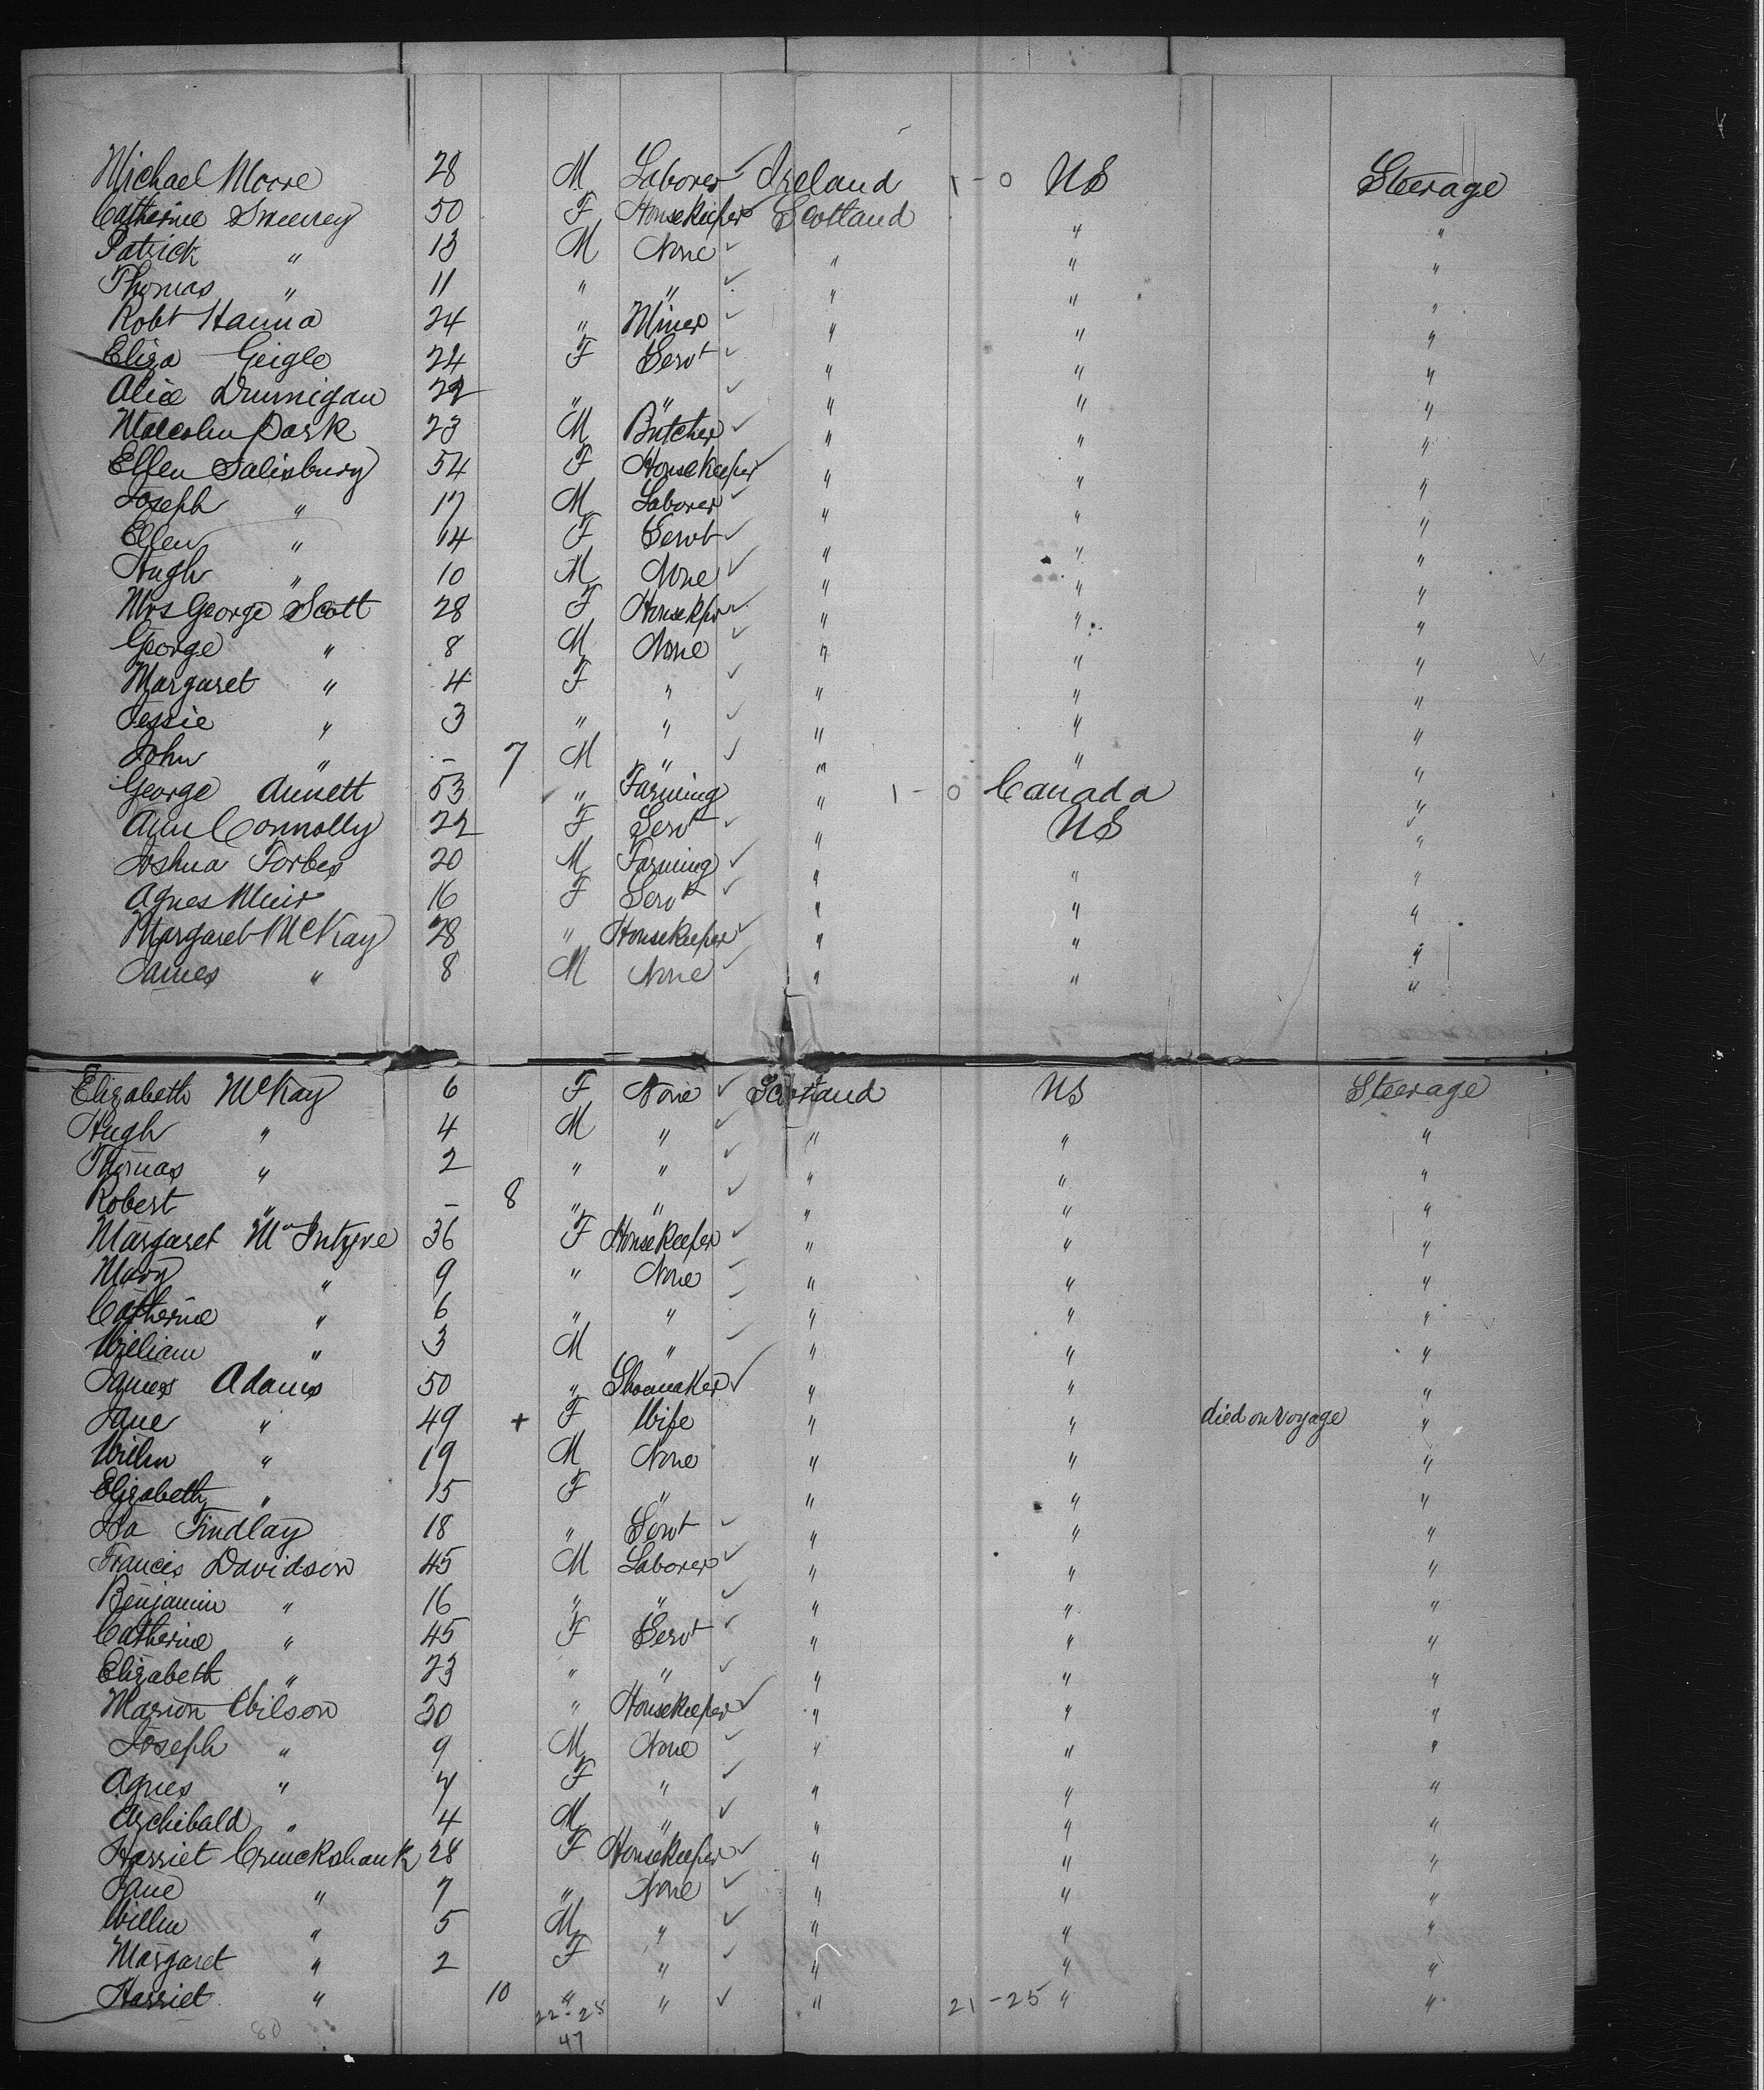 Michael Moore 28 M Laborer ✓ Ireland 1 - 0 US Steerage
Catherine Sweeney 50 F Housekeeper ✓ Scotland " "
Patrick " 13 M None ✓ " " "
Thomas " 11 " " ✓ " " "
Robt Hanna 24 " Miner ✓ " " "
Eliza Geigle 24 F Servt ✓ " " "
Alice Drumigan 22 " " ✓ " " "
Malcolm Park 23 M Butcher ✓ " " "
Ellen Salisbury 54 F Housekeeper ✓ " " "
Joseph " 17 M Laborer ✓ " " "
Ellen " 14 F Servt ✓ " " "
Hugh " 10 M None ✓ " " "
Mrs George Scott 28 F Housekpr ✓ " " "
George " 8 M None ✓ " " "
Margaret " 4 F " ✓ " " "
Jessie " 3 " " ✓ " " "
John " - 7 M " ✓ " " "
George Annett 53 ✓ " Farming " 1 - 0 Canada "
Ann Connolly 22 F Servt ✓ " US "
Joshua Forbes 20 M Farming ✓ " " "
Agnes Muir 16 F Servt ✓ " " "
Margaret McKay 28 " Housekeeper ✓ " " "
James " 8 M None ✓ " " "
Elizabeth McKay 6 F None ✓ Scotland US Steerage
Hugh " 4 M " ✓ " " "
Thomas " 2 " " ✓ " " "
Robert " - 8 " " ✓ " " "
Margaret McIntyre 36 F Housekeeper ✓ " " "
Mary " 9 " None ✓ " " "
Catherine " 6 " " ✓ " " "
William " 3 M " ✓ " " "
James Adams 50 " Shoemaker ✓ " " "
Jane " 49 + F Wife " " died on Voyage "
Willm " 19 M None " " "
Elizabeth " 15 F " " " "
Isa Findlay 18 " Servt ✓ " " "
Francis Davidson 45 M Laborer ✓ " " "
Benjamin " 16 " " ✓ " " "
Catherine " 45 F Servt ✓ " " "
Elizabeth " 23 " " ✓ " " "
Marion Wilson 30 " Housekeeper ✓ " " "
Joseph " 9 M None ✓ " " "
Agnes " 7 F " ✓ " " "
Archibald " 4 M " ✓ " " "
Harriet Cruickshank 28 F Housekeeper ✓ " " "
Jane " 7 " None ✓ " " "
Willm " 5 M " ✓ " " "
Margaret " 2 F " ✓ " " "
Harriet " 10 " " ✓ " 21 - 25 " "
22 - 25
47